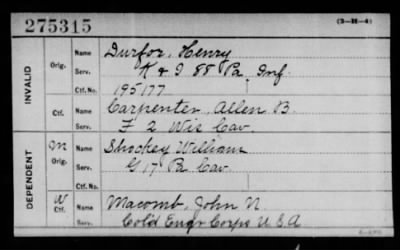 275315 (3-H-4)
INVALID
Orig. Name Durfor, Henry
Serv. K & I 88 Pa. Inf.
Ctf. No. 195177
Ctf. Name Carpenter, Allen B.
Serv. F 2 Wis Cav.
DEPENDENT
M Orig. Name Shockey William
Serv. G 17 Pa Cav.
Ctf. No.
W Ctf. Name Macomb, John N.
Serv. Cold Engr Corps U.S.A